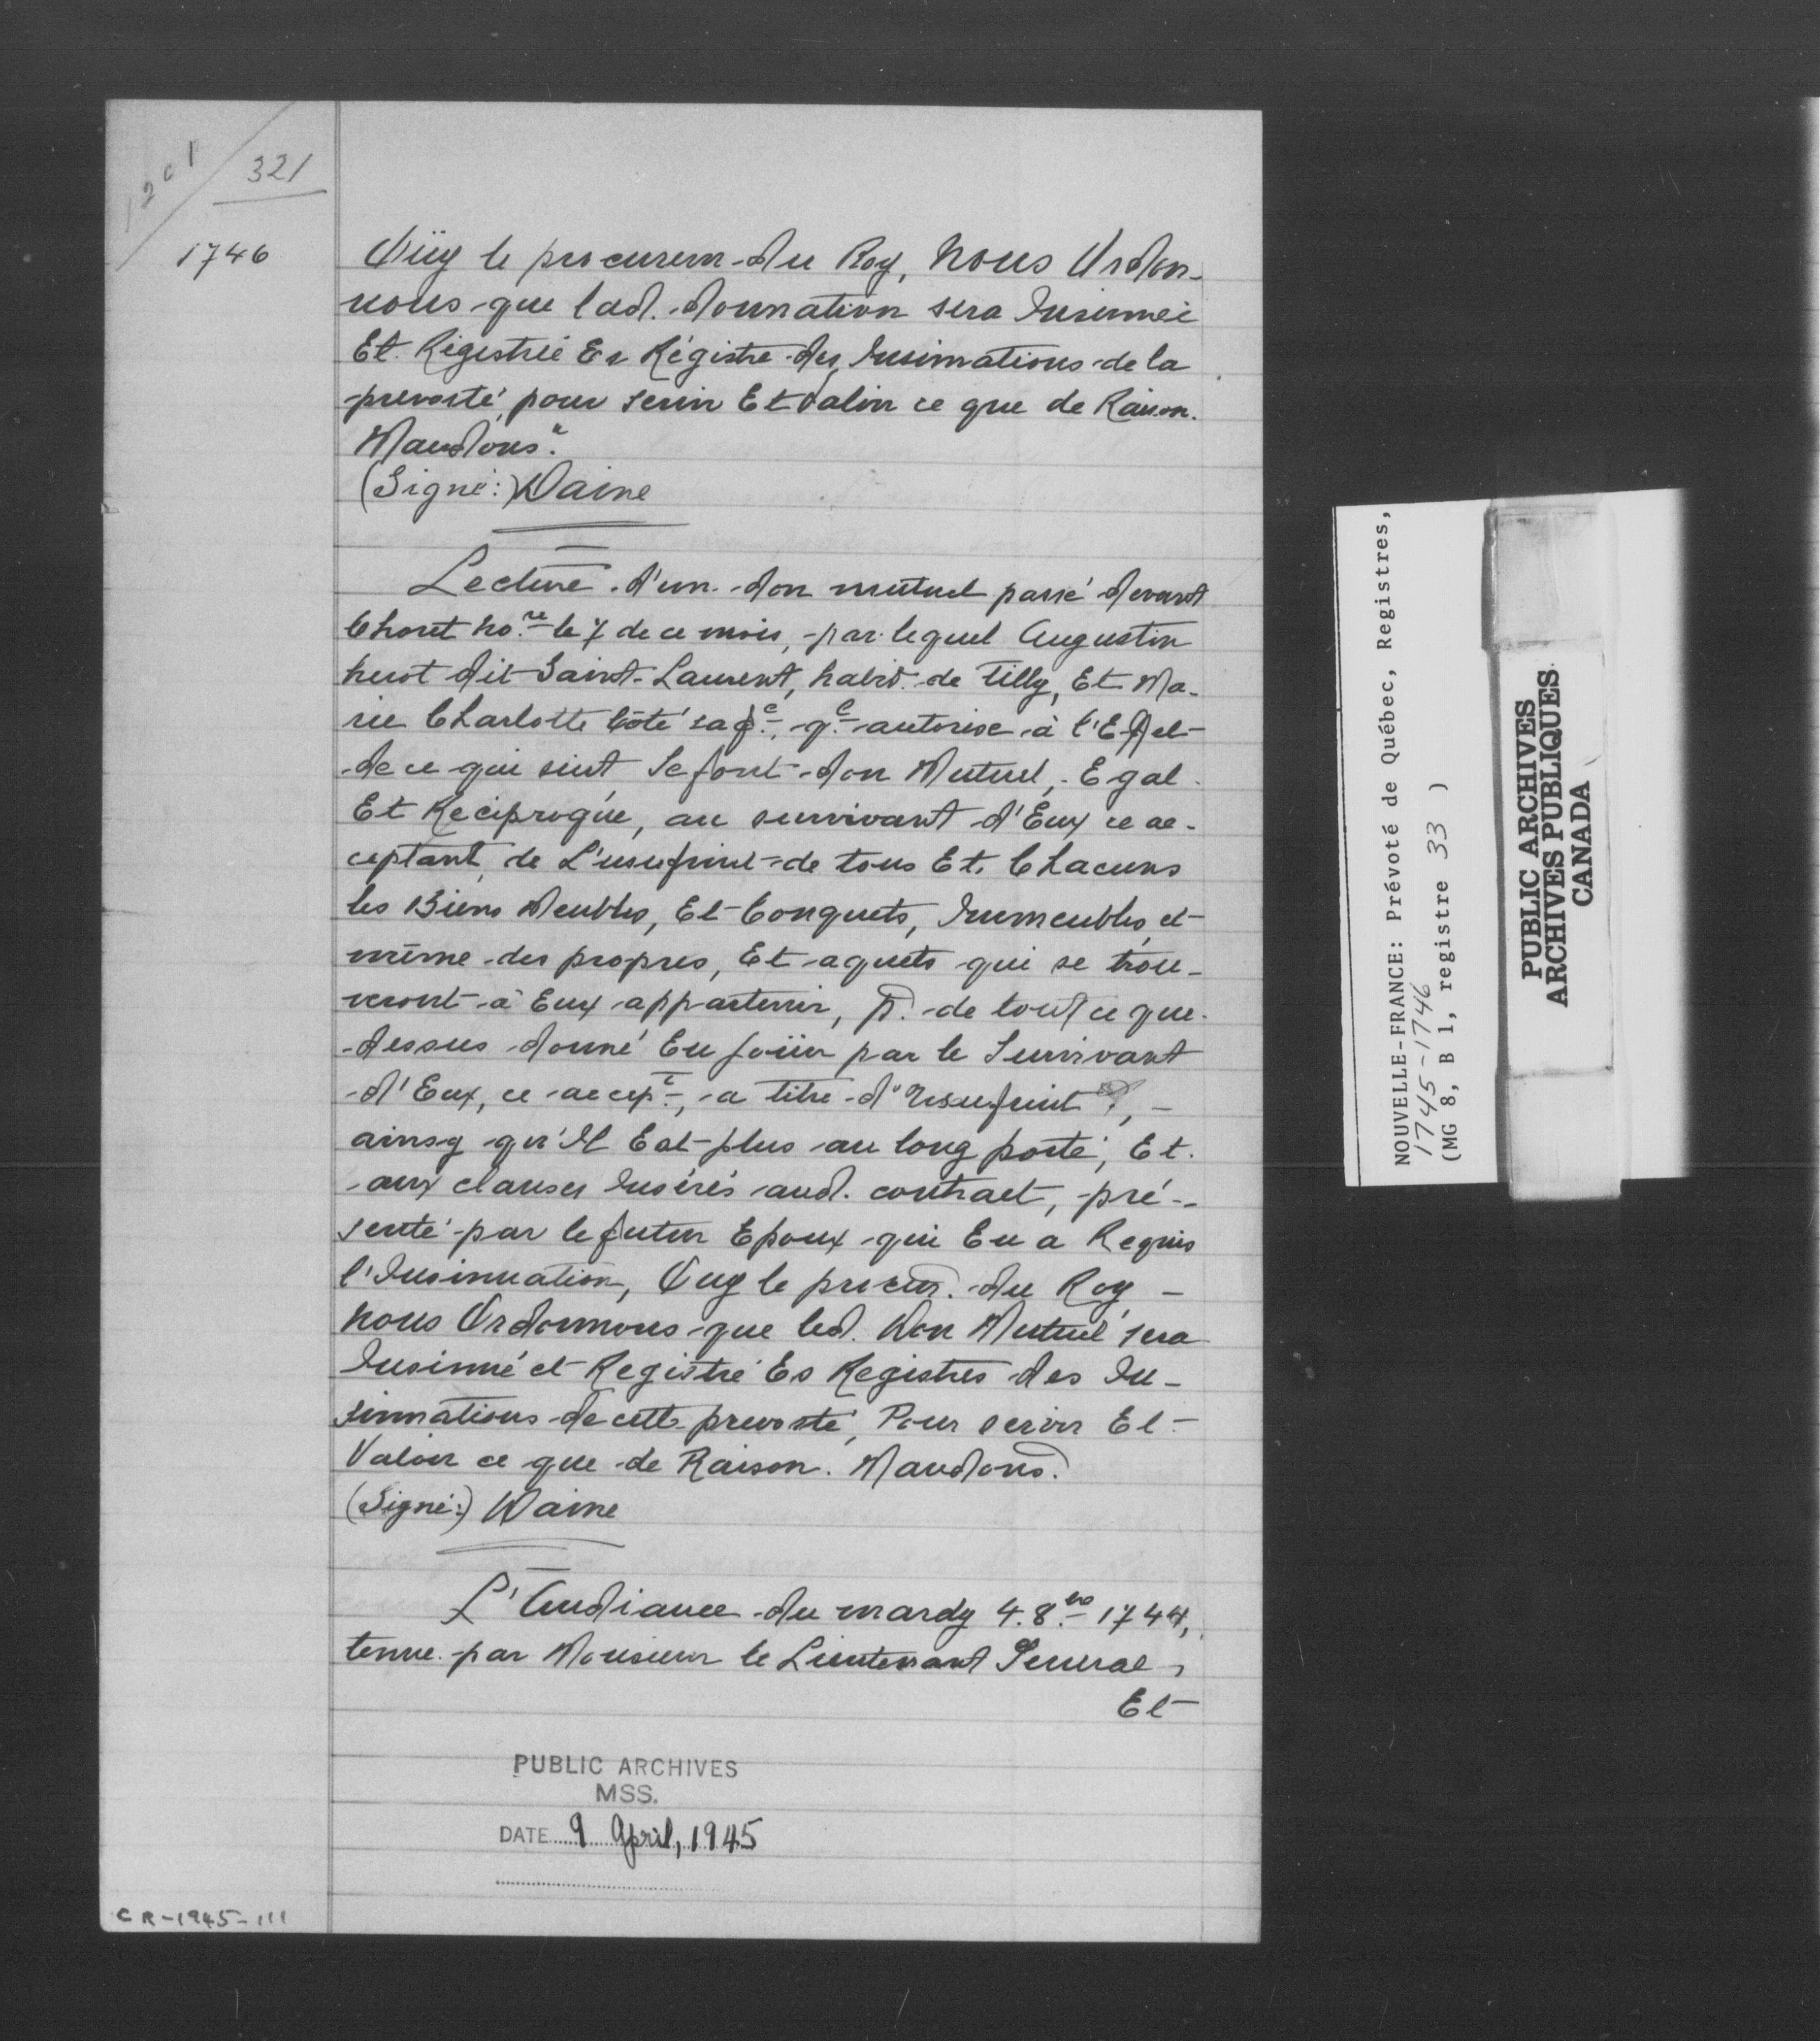 1201 / 321
1746
Oüy le procureur du Roy, Nous Ordon-
nons que lad. donnation sera Insinuée
Et Régistrée Es Régistre des Insinuations de la
prevosté, pour servir Et valoir ce que de Raison.
Mandons".
(Signé:) Daine
Lecture d'un don mutuel passé devant
Choret no.re le 7 de ce mois, par lequel Augustin
huot dit Saint-Laurent, habit. de Tilly, Et Ma-
rie Charlotte Coté sa fe., qe. autorise à l'Effet
de ce qui suit se font don Mutuel, Egal
Et Réciproque, au survivant d'Eux ce ac-
ceptant, de L'usufruit de tous Et Chacuns
les Biens Meubles, Et Conquets, Immeubles, et
même des propres, Et aquets qui se trou-
veront à Eux appartenir, p. de tout ce que
dessus donné En joüir par le Survivant
d'Eux, ce accept., a titre d'Usufruit,
ainsy qu'Il Est plus au long porté, Et
aux clauses Insérés aud. contract, pré-
senté par le futur Epoux qui En a Requis
l'Insinuation, Ouy le procur. du Roy,
Nous Ordonnons que led. Don Mutuel sera
Insinué et Registré Es Registres des In-
sinuations de cette prevosté, Pour servir Et
Valoir ce que de Raison. Mandons.
(Signé:) Daine
L'Audiance du mardy 4. 8.bre 1744,
tenue par Monsieur le Lieutenant General,
Et
PUBLIC ARCHIVES
MSS.
DATE 9 April, 1945
CR-1945-111
NOUVELLE-FRANCE: Prévoté de Québec, Registres,
1745-1746
(MG 8, B 1, registre 33 )
PUBLIC ARCHIVES
ARCHIVES PUBLIQUES
CANADA